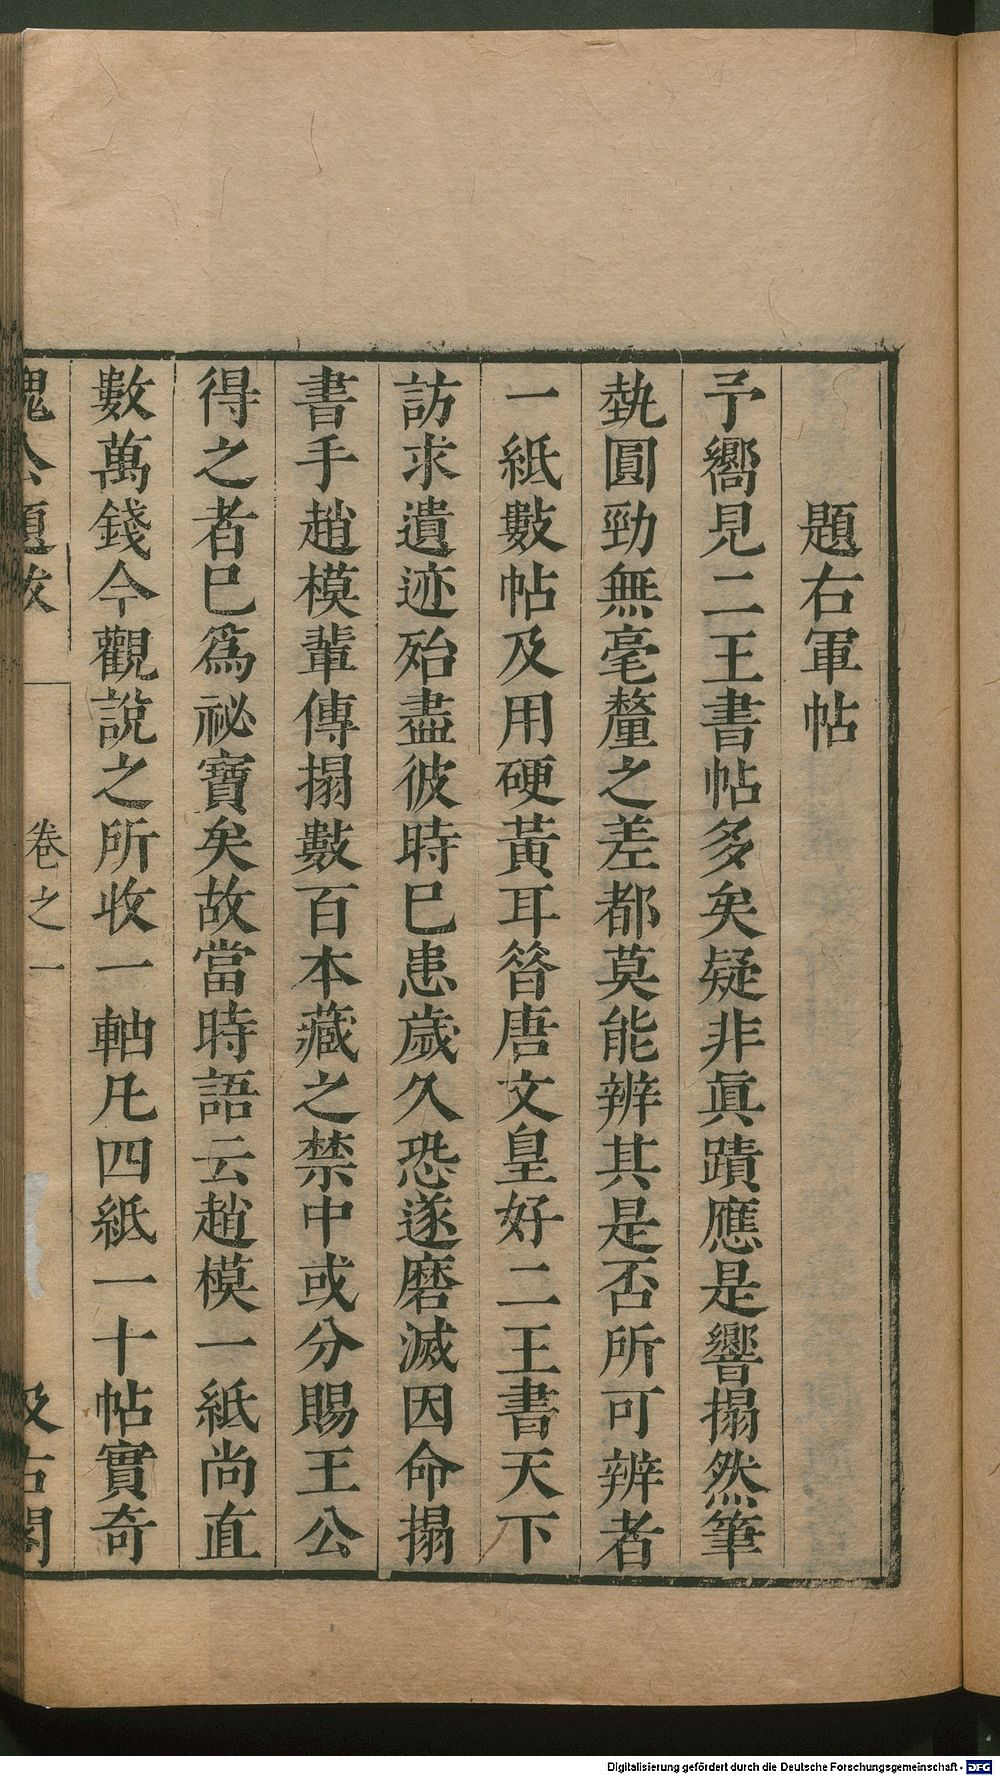 題右軍帖
予嚮見二王書帖多矣疑非眞蹟應是響搨然筆
埶圓勁無毫釐之差都莫能辨其是否所可辨者
一紙數帖及用硬黃耳昝唐文皇好二王書天下
訪求遺迹殆盡彼時巳患歲久恐遂磨滅因命搨
書手趙模輩傳搨數百本藏之禁中或分賜王公
得之者巳爲祕寶矣故當時語云趙模一紙尚直
數萬錢今觀說之所收一軸凡四紙一十帖實奇
魏公題跋 卷之一 汲古閣
Digitalisierung gefördert durch die Deutsche Forschungsgemeinschaft - DFG